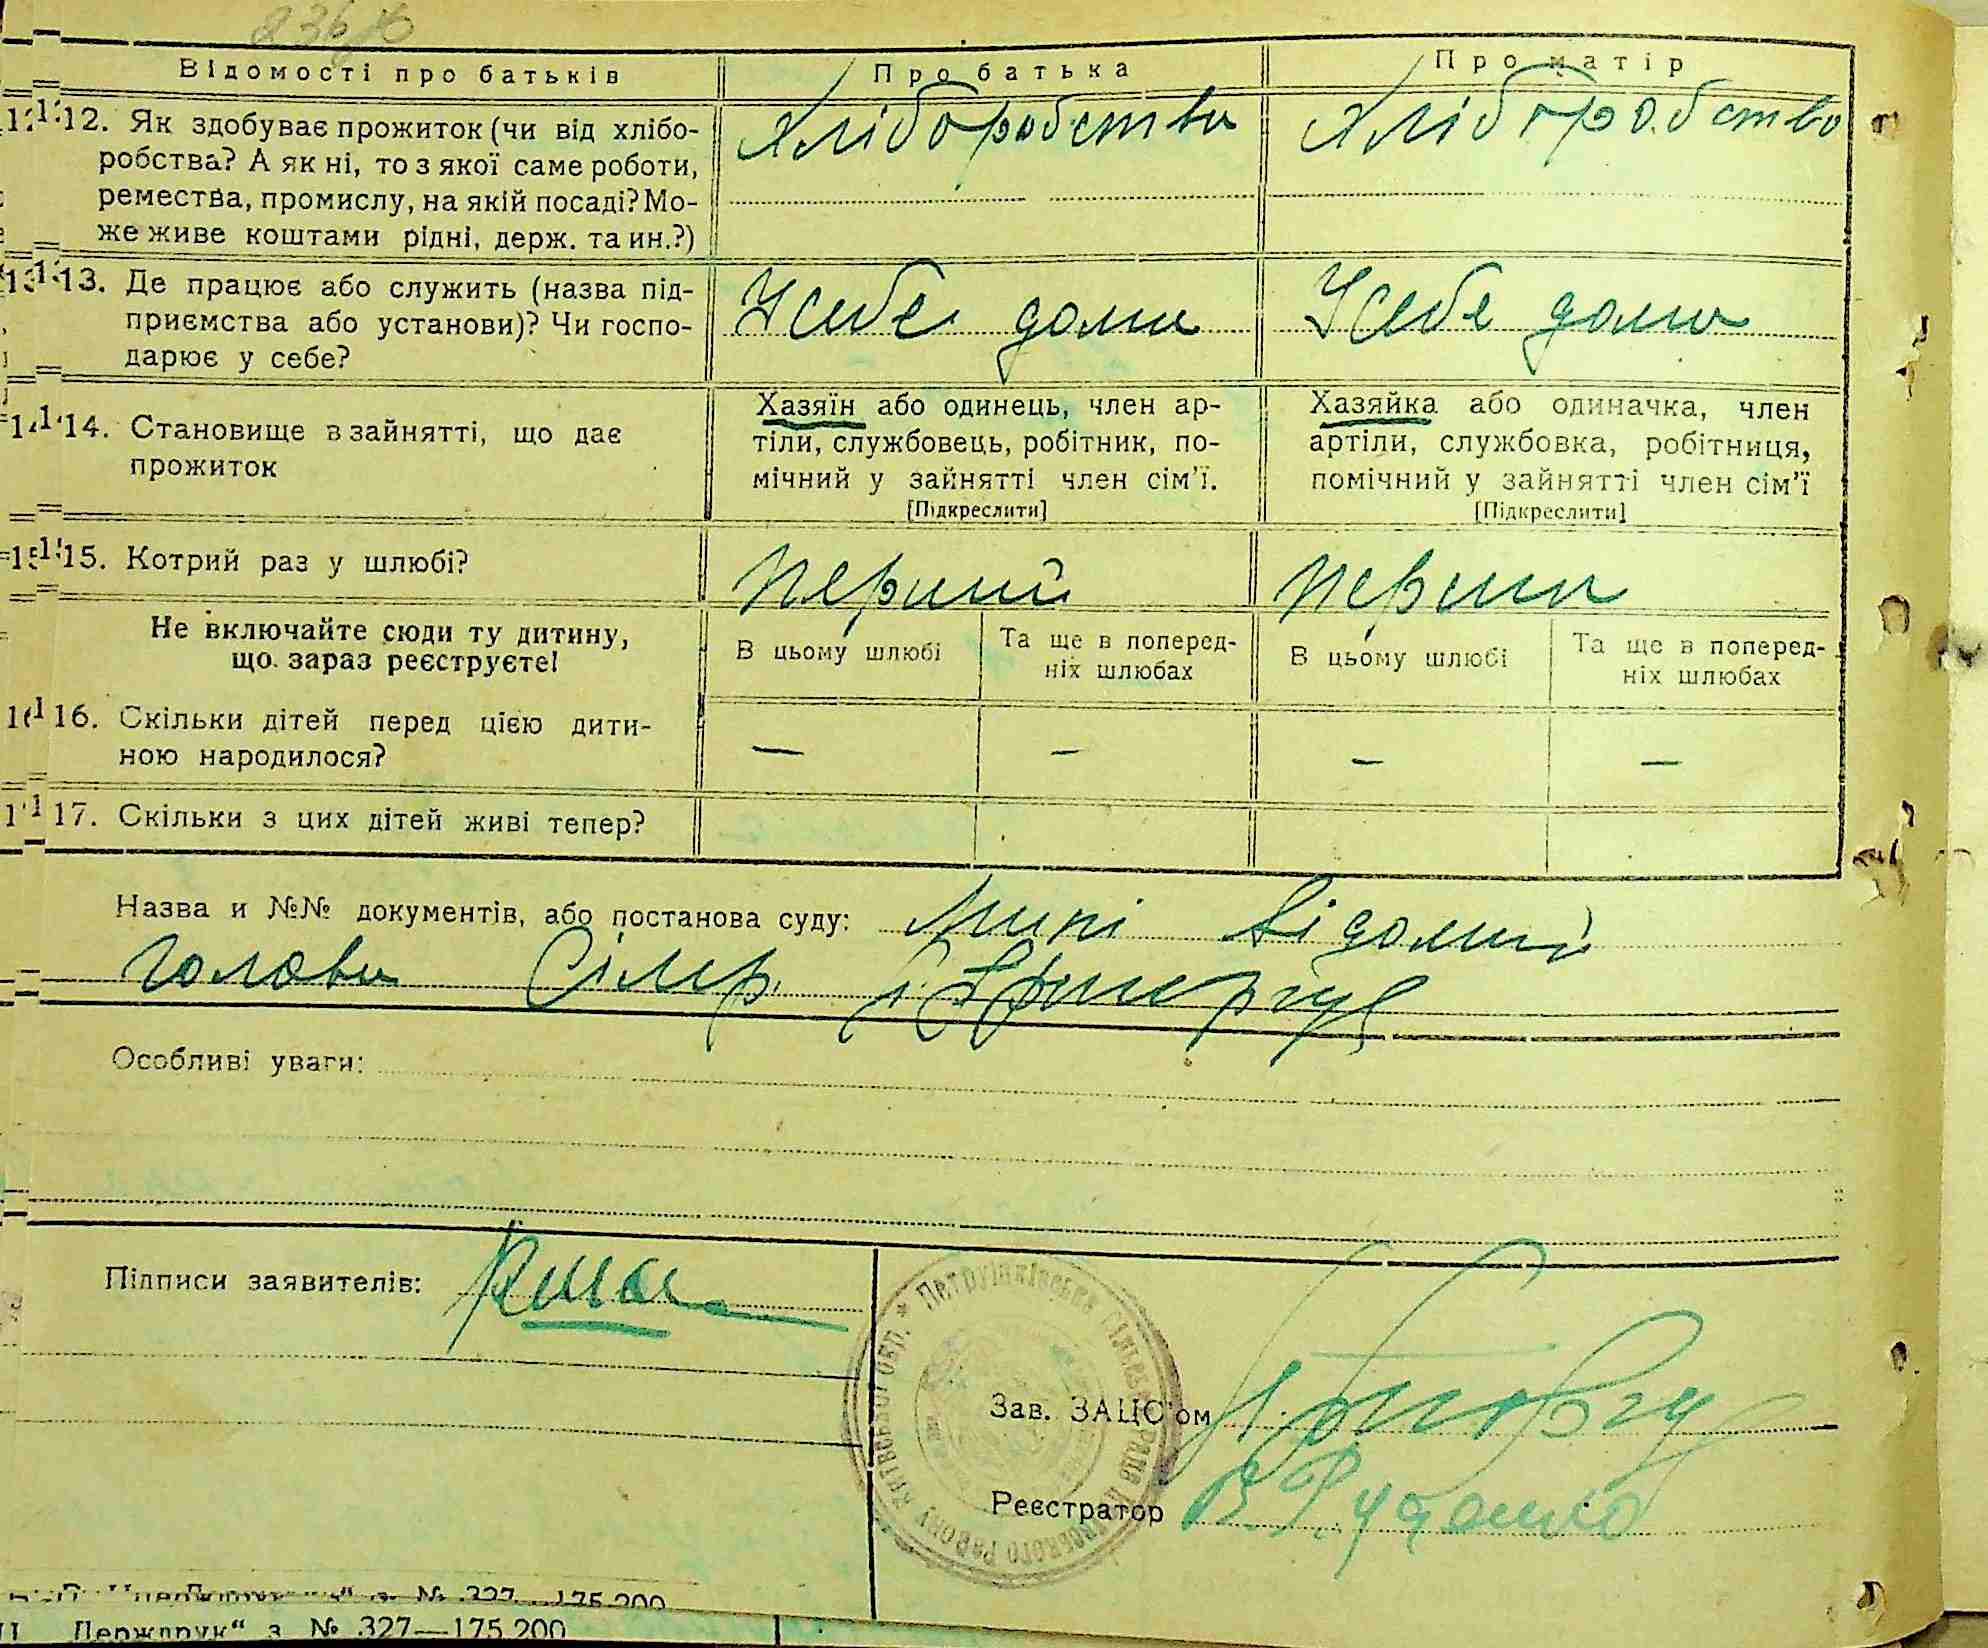 Відомості про батьків
Про батька
Про матір
12. Як здобуває прожиток (чи від хлібо-
робства? А як ні, то з якої саме роботи,
ремества, промислу, на якій посаді? Мо-
же живе коштами рідні, держ. та ин.?)
Хліборобство
Хліборобство
13. Де працює або служить (назва під-
приємства або установи)? Чи госпо-
дарює у себе?
У себе дома
У себе дома
14. Становище в зайнятті, що дає
прожиток
Хазяїн або одинець, член ар-
тіли, службовець, робітник, по-
мічний у зайнятті член сім'ї.
[Підкреслити]
Хазяйка або одиначка, член
артіли, службовка, робітниця,
помічний у зайнятті член сім'ї
[Підкреслити]
15. Котрий раз у шлюбі?
Перший
Перший
Не включайте сюди ту дитину,
що зараз реєструєте!
В цьому шлюбі
Та ще в поперед-
ніх шлюбах
В цьому шлюбі
Та ще в поперед-
ніх шлюбах
16. Скільки дітей перед цією дити-
ною народилося?
— — — —
17. Скільки з цих дітей живі тепер?
Назва и №№ документів, або постанова суду: Мині відомий
Голова Сілр.
Особливі уваги:
Підписи заявителів:
Зав. ЗАЦС'ом
Реєстратор
Петрушківська Сільська Рада
району Київської обл.
№ 327—175.200
Держдрук" з. № 327—175.200